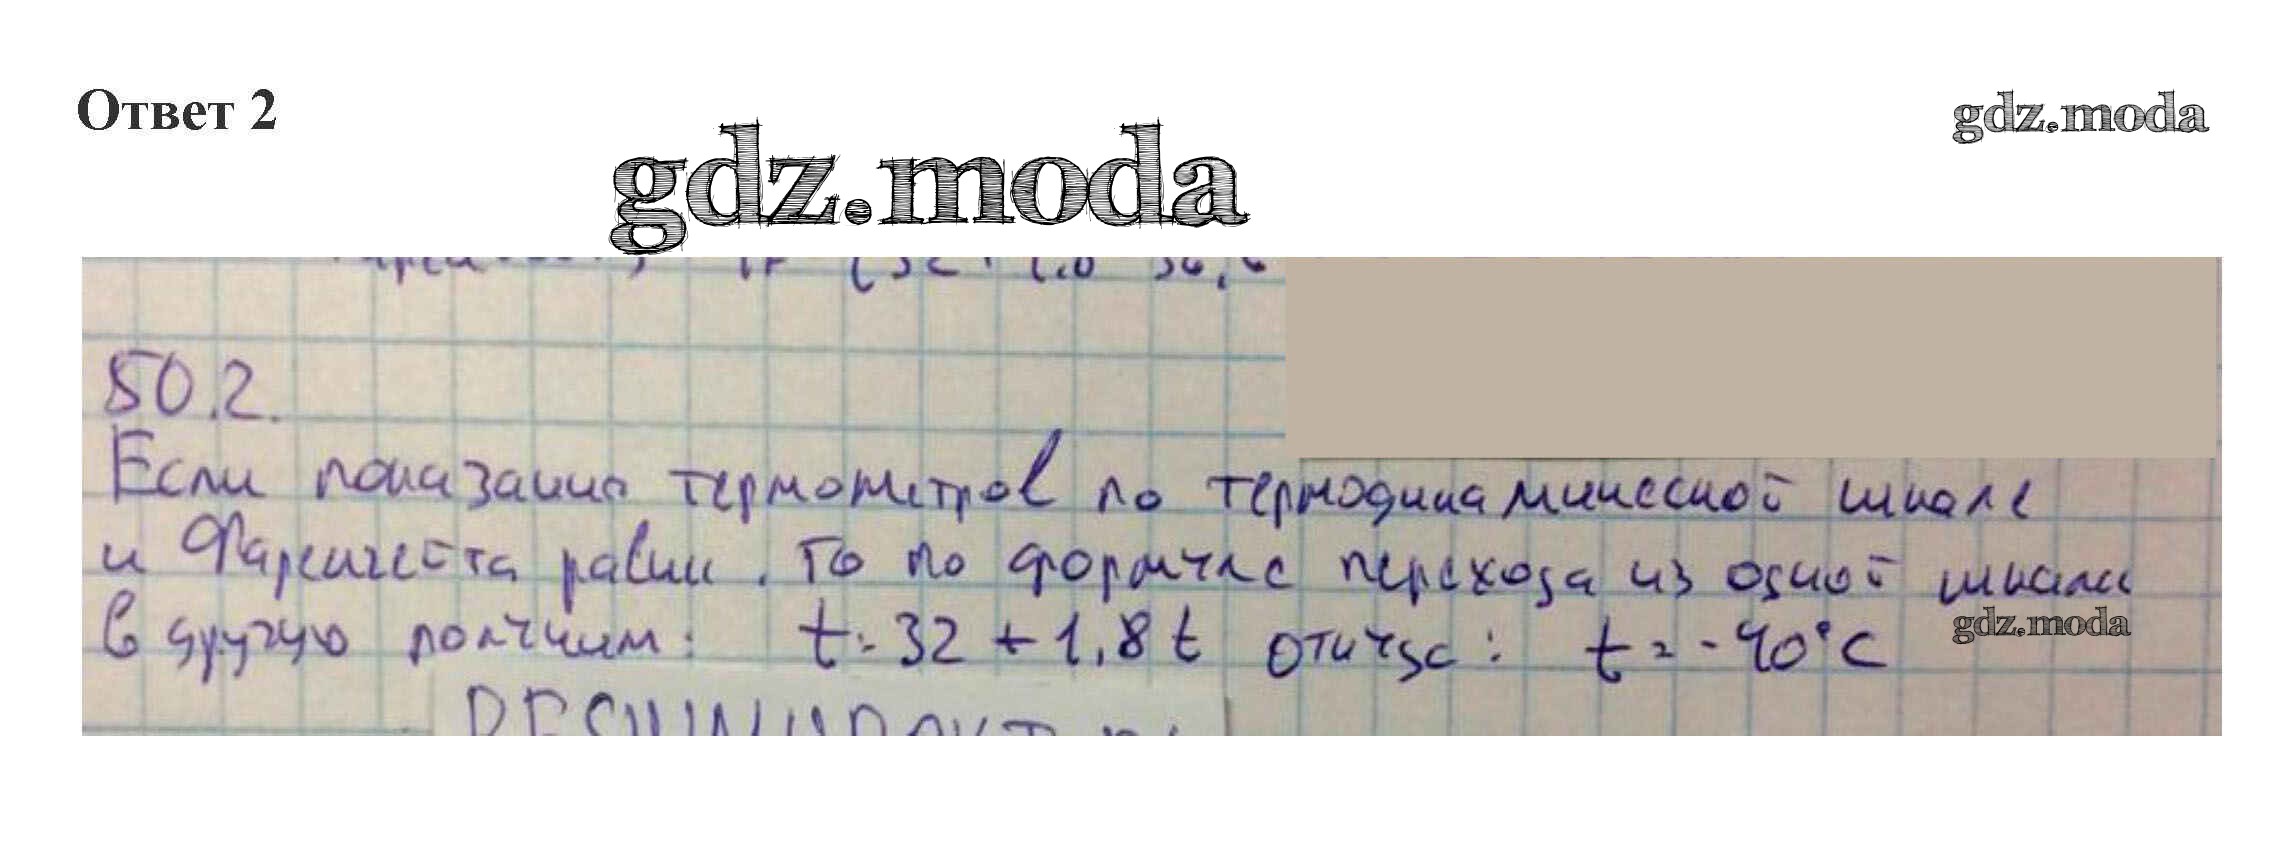 Ответ 2
gdz.moda
gdz.moda
50.2.
Если показания термометров по термодинамической шкале
и Фаренгейта равны. То по формуле перехода из одной шкалы
в другую получим: t = 32 + 1,8 t откуда: t = -40°C
gdz.moda